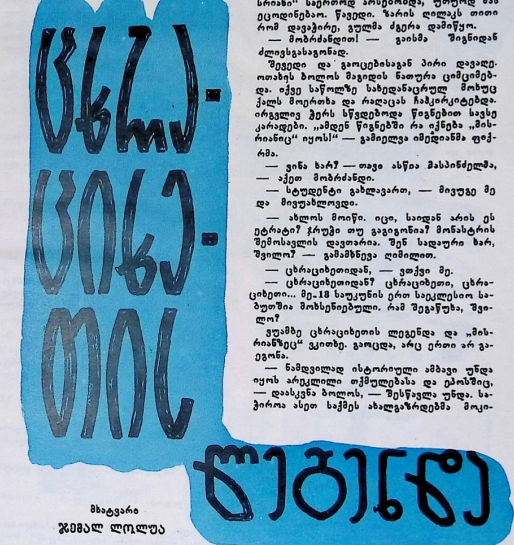 ცხრა-
ციხე-
თის
ლეგენდა
მხატვარი
ჯემალ ლოლუა
სრიანი“ საერთოდ არსებობდა, უთუოდ მას
ეცოდინებაო. წავედი. ზარის ღილაკს თითი
რომ დავაჭირე, გულმა ძგერა დამიწყო.
— მობრძანდით! — გაისმა შიგნიდან
ძლივსგასაგონად.
შევედი და გაოცებისაგან პირი დავაღე.
ოთახის ბოლოს მაგიდის ნათურა ციმციმებ-
და. იქვე საწოლზე სახედანაცრულ მოხუც
ქალს მოერთხა და რაღაცას ჩაჰკირკიტებდა.
ირგვლივ ჭერს სწვდებოდა წიგნებით სავსე
კარადები. „ამდენ წიგნებში რა იქნება „მის-
რიანიც“ იყოს!“ — გამიელვა იმედიანმა ფიქ-
რმა.
— ვინა ხარ? — თავი ასწია მასპინძელმა,
— აქეთ მობრძანდი.
— სტუდენტი გახლავართ, — მივუგე მე
და მივუახლოვდი.
— ახლოს მოიწი. იცი, საიდან არის ეს
ეტრატი? ჯრუჭი თუ გაგიგონია? მონასტრის
შემოსავლის დავთარია. შენ სადაური ხარ,
შვილო? — გამამხნევა ღიმილით.
— ცხრაციხეთიდან, — ვთქვი მე.
— ცხრაციხეთიდან? ცხრაციხეთი, ცხრა-
ციხეთი... მე-18 საუკუნის ერთ საეკლესიო სა-
ბუთშია მოხსენიებული. რამ შეგაწუხა, შვი-
ლო?
ვუამბე ცხრაციხეთის ლეგენდა და „მის-
რიანზეც“ ვკითხე. გაოცდა, არც ერთი არ გა-
ეგონა.
— ნამდვილად ისტორიული ამბავი უნდა
იყოს არეკლილი თქმულებასა და ეპოსშიც,
— დასკვნა ბოლოს, — შესწავლა უნდა. სა-
ჭიროა ასეთ საქმეს ახალგაზრდებმა მოკი-